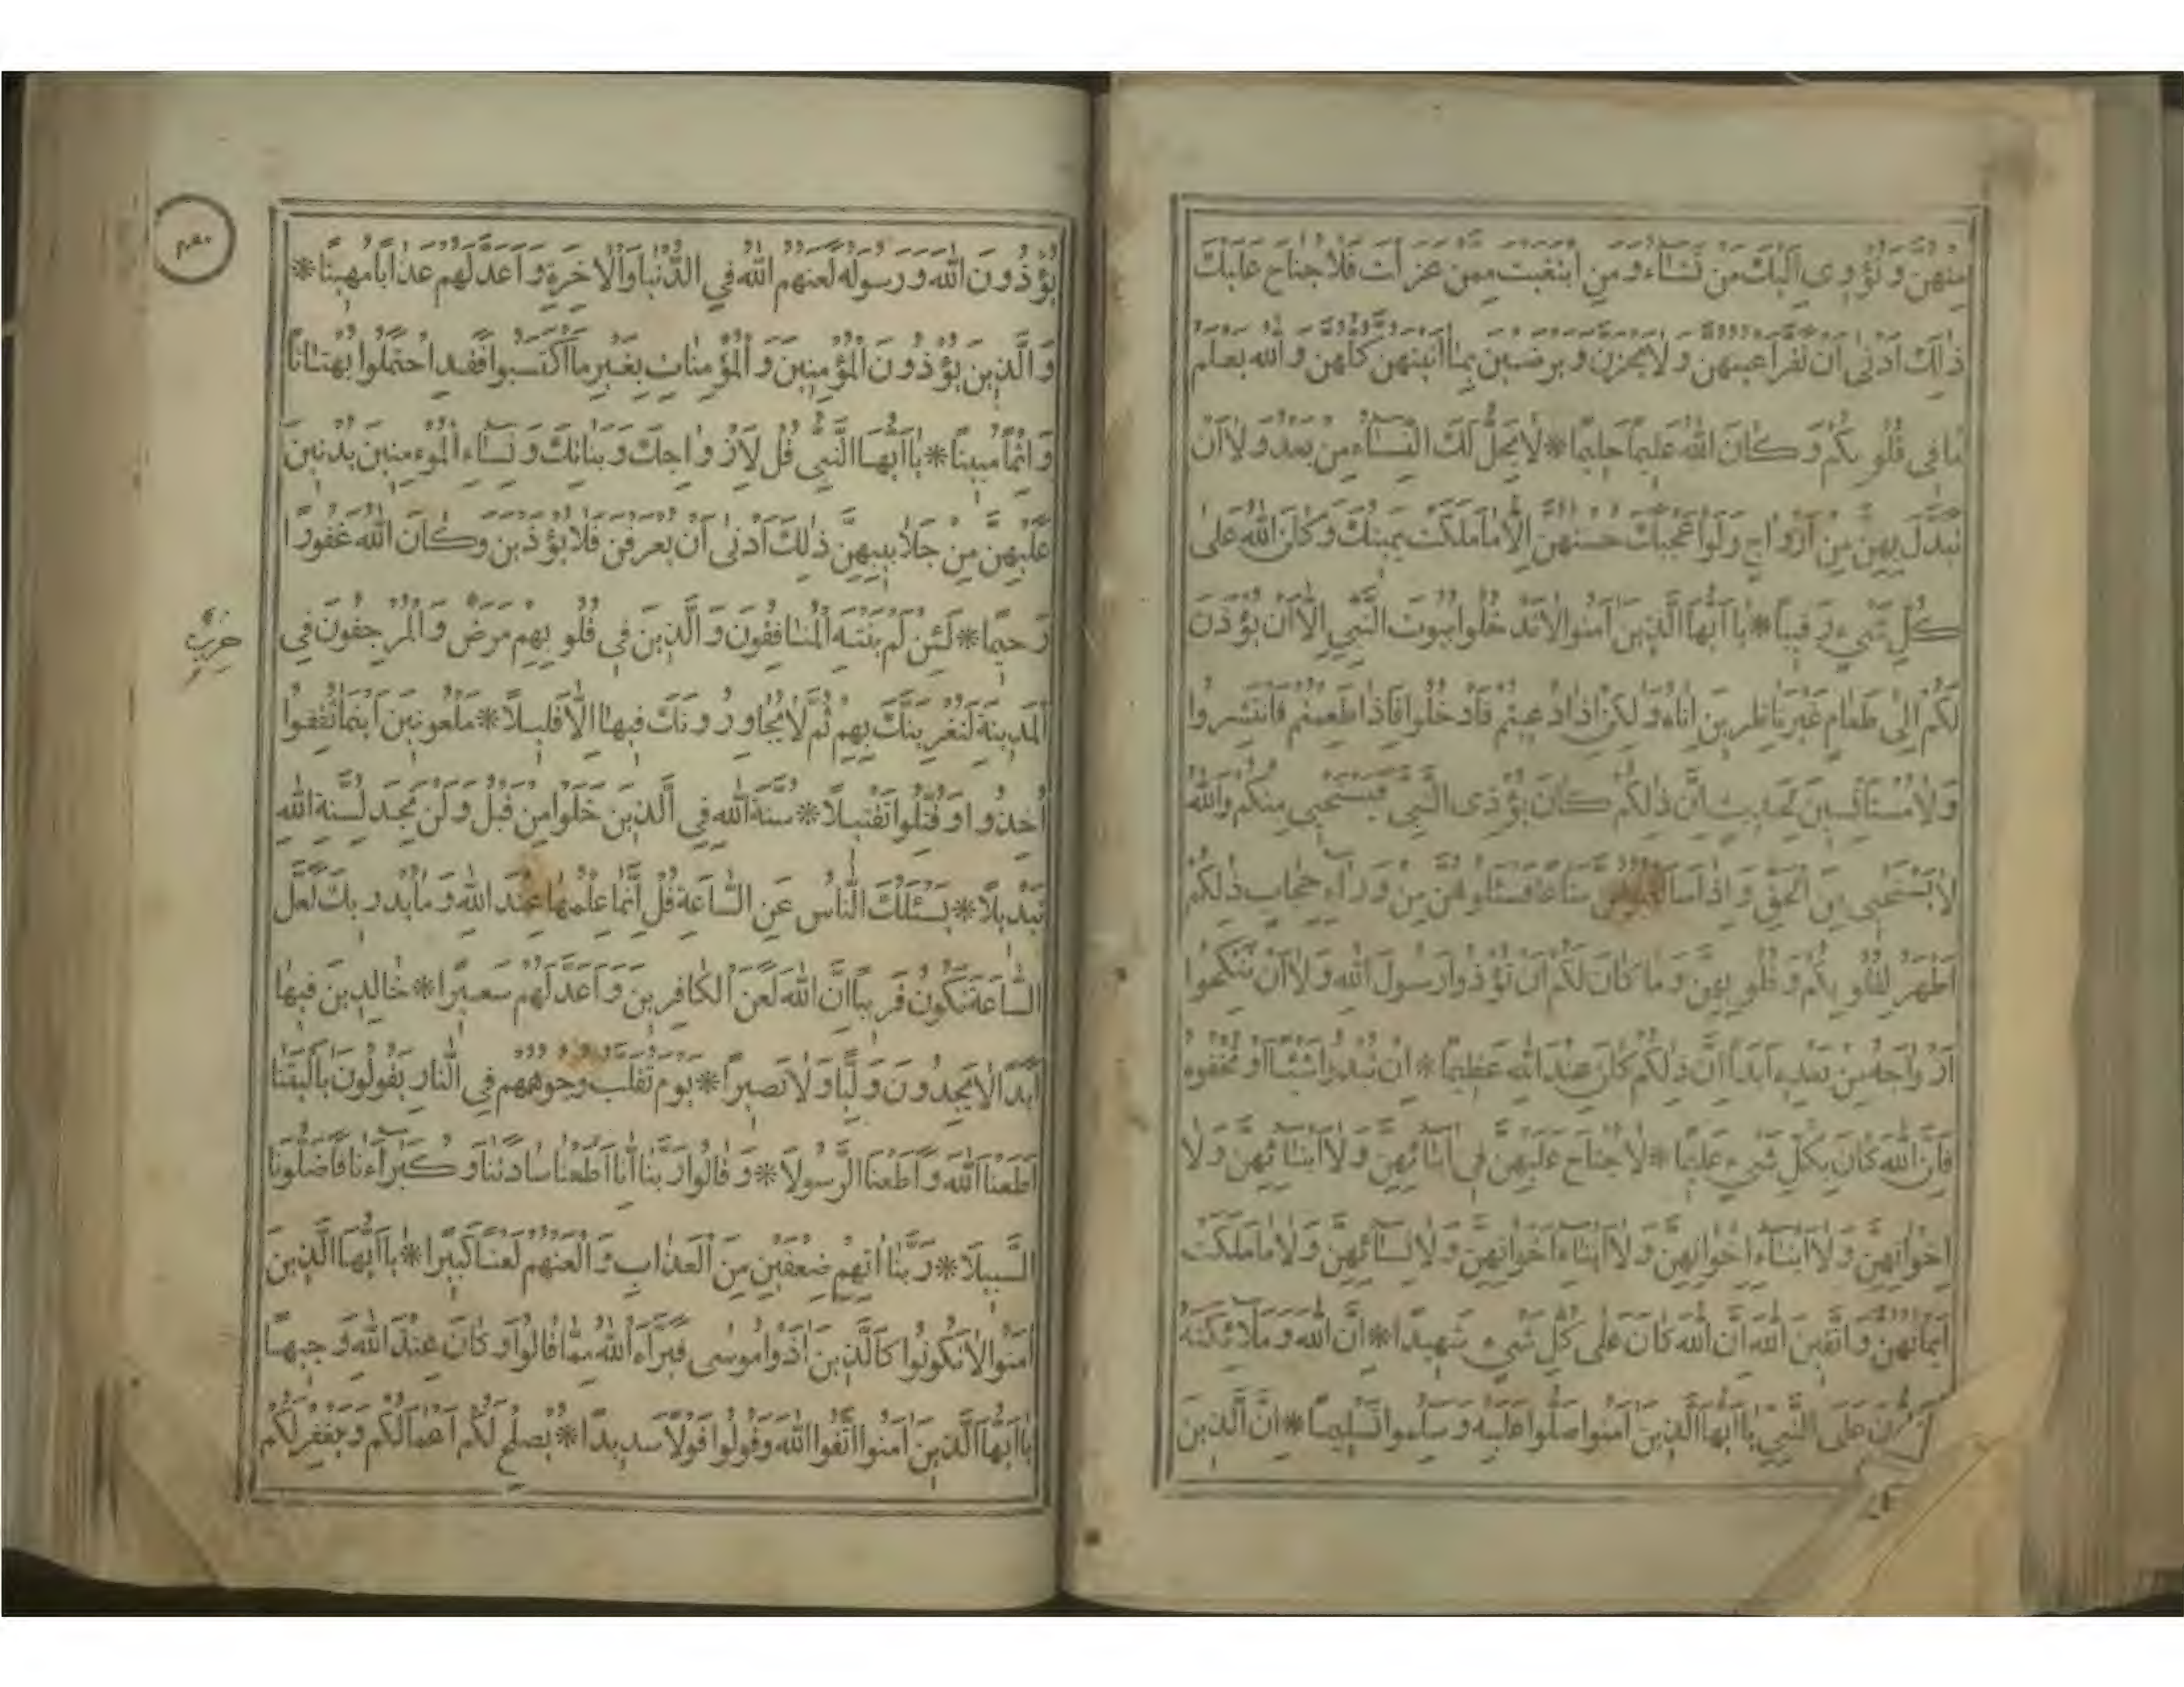 مِنْهُنَّ وَتُؤْوِي اِلَيْكَ مَنْ تَشَاءُ وَمَنِ ابْتَغَيْتَ مِمَّنْ عَزَلْتَ فَلَا جُنَاحَ عَلَيْكَ
ذٰلِكَ اَدْنٰى اَنْ تَقَرَّ اَعْيُنُهُنَّ وَلَا يَحْزَنَّ وَيَرْضَيْنَ بِمَا اٰتَيْتَهُنَّ كُلُّهُنَّ وَاللّٰهُ يَعْلَمُ
مَا فِي قُلُوبِكُمْ وَكَانَ اللّٰهُ عَلِيمًا حَلِيمًا * لَا يَحِلُّ لَكَ النِّسَاءُ مِنْ بَعْدُ وَلَا اَنْ
تَبَدَّلَ بِهِنَّ مِنْ اَزْوَاجٍ وَلَوْ اَعْجَبَكَ حُسْنُهُنَّ اِلَّا مَا مَلَكَتْ يَمِينُكَ وَكَانَ اللّٰهُ عَلٰى
كُلِّ شَيْءٍ رَقِيبًا * يَا اَيُّهَا الَّذِينَ اٰمَنُوا لَا تَدْخُلُوا بُيُوتَ النَّبِيِّ اِلَّا اَنْ يُؤْذَنَ
لَكُمْ اِلٰى طَعَامٍ غَيْرَ نَاظِرِينَ اِنَاهُ وَلٰكِنْ اِذَا دُعِيتُمْ فَادْخُلُوا فَاِذَا طَعِمْتُمْ فَانْتَشِرُوا
وَلَا مُسْتَأْنِسِينَ لِحَدِيثٍ اِنَّ ذٰلِكُمْ كَانَ يُؤْذِي النَّبِيَّ فَيَسْتَحْيِي مِنْكُمْ وَاللّٰهُ
لَا يَسْتَحْيِي مِنَ الْحَقِّ وَاِذَا سَاَلْتُمُوهُنَّ مَتَاعًا فَسْئَلُوهُنَّ مِنْ وَرَاءِ حِجَابٍ ذٰلِكُمْ
اَطْهَرُ لِقُلُوبِكُمْ وَقُلُوبِهِنَّ وَمَا كَانَ لَكُمْ اَنْ تُؤْذُوا رَسُولَ اللّٰهِ وَلَا اَنْ تَنْكِحُوا
اَزْوَاجَهُ مِنْ بَعْدِهِ اَبَدًا اِنَّ ذٰلِكُمْ كَانَ عِنْدَ اللّٰهِ عَظِيمًا * اِنْ تُبْدُوا شَيْئًا اَوْ تُخْفُوهُ
فَاِنَّ اللّٰهَ كَانَ بِكُلِّ شَيْءٍ عَلِيمًا * لَا جُنَاحَ عَلَيْهِنَّ فِي اٰبَائِهِنَّ وَلَا اَبْنَائِهِنَّ وَلَا
اِخْوَانِهِنَّ وَلَا اَبْنَاءِ اِخْوَانِهِنَّ وَلَا اَبْنَاءِ اَخَوَاتِهِنَّ وَلَا نِسَائِهِنَّ وَلَا مَا مَلَكَتْ
اَيْمَانُهُنَّ وَاتَّقِينَ اللّٰهَ اِنَّ اللّٰهَ كَانَ عَلٰى كُلِّ شَيْءٍ شَهِيدًا * اِنَّ اللّٰهَ وَمَلَائِكَتَهُ
عَلَى النَّبِيِّ يَا اَيُّهَا الَّذِينَ اٰمَنُوا صَلُّوا عَلَيْهِ وَسَلِّمُوا تَسْلِيمًا * اِنَّ الَّذِينَ
يُؤْذُونَ اللّٰهَ وَرَسُولَهُ لَعَنَهُمُ اللّٰهُ فِي الدُّنْيَا وَالْاٰخِرَةِ وَاَعَدَّ لَهُمْ عَذَابًا مُهِينًا *
وَالَّذِينَ يُؤْذُونَ الْمُؤْمِنِينَ وَالْمُؤْمِنَاتِ بِغَيْرِ مَا اكْتَسَبُوا فَقَدِ احْتَمَلُوا بُهْتَانًا
وَاِثْمًا مُبِينًا * يَا اَيُّهَا النَّبِيُّ قُلْ لِاَزْوَاجِكَ وَبَنَاتِكَ وَنِسَاءِ الْمُؤْمِنِينَ يُدْنِينَ
عَلَيْهِنَّ مِنْ جَلَابِيبِهِنَّ ذٰلِكَ اَدْنٰى اَنْ يُعْرَفْنَ فَلَا يُؤْذَيْنَ وَكَانَ اللّٰهُ غَفُورًا
رَحِيمًا * لَئِنْ لَمْ يَنْتَهِ الْمُنَافِقُونَ وَالَّذِينَ فِي قُلُوبِهِمْ مَرَضٌ وَالْمُرْجِفُونَ فِي
حزب
الْمَدِينَةِ لَنُغْرِيَنَّكَ بِهِمْ ثُمَّ لَا يُجَاوِرُونَكَ فِيهَا اِلَّا قَلِيلًا * مَلْعُونِينَ اَيْنَمَا ثُقِفُوا
اُخِذُوا وَقُتِّلُوا تَقْتِيلًا * سُنَّةَ اللّٰهِ فِي الَّذِينَ خَلَوْا مِنْ قَبْلُ وَلَنْ تَجِدَ لِسُنَّةِ اللّٰهِ
تَبْدِيلًا * يَسْئَلُكَ النَّاسُ عَنِ السَّاعَةِ قُلْ اِنَّمَا عِلْمُهَا عِنْدَ اللّٰهِ وَمَا يُدْرِيكَ لَعَلَّ
السَّاعَةَ تَكُونُ قَرِيبًا اِنَّ اللّٰهَ لَعَنَ الْكَافِرِينَ وَاَعَدَّ لَهُمْ سَعِيرًا * خَالِدِينَ فِيهَا
اَبَدًا لَا يَجِدُونَ وَلِيًّا وَلَا نَصِيرًا * يَوْمَ تُقَلَّبُ وُجُوهُهُمْ فِي النَّارِ يَقُولُونَ يَا لَيْتَنَا
اَطَعْنَا اللّٰهَ وَاَطَعْنَا الرَّسُولَا * وَقَالُوا رَبَّنَا اِنَّا اَطَعْنَا سَادَتَنَا وَكُبَرَاءَنَا فَاَضَلُّونَا
السَّبِيلَا * رَبَّنَا اٰتِهِمْ ضِعْفَيْنِ مِنَ الْعَذَابِ وَالْعَنْهُمْ لَعْنًا كَبِيرًا * يَا اَيُّهَا الَّذِينَ
اٰمَنُوا لَا تَكُونُوا كَالَّذِينَ اٰذَوْا مُوسٰى فَبَرَّاَهُ اللّٰهُ مِمَّا قَالُوا وَكَانَ عِنْدَ اللّٰهِ وَجِيهًا
يَا اَيُّهَا الَّذِينَ اٰمَنُوا اتَّقُوا اللّٰهَ وَقُولُوا قَوْلًا سَدِيدًا * يُصْلِحْ لَكُمْ اَعْمَالَكُمْ وَيَغْفِرْ لَكُمْ